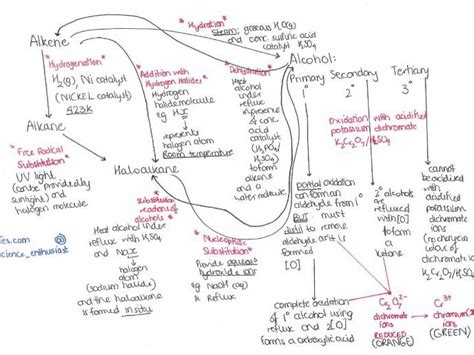 *Hydration*
Steam: gaseous H2O(g)
and conc. sulfuric acid
catalyst H2SO4
Alkene
*Hydrogenation*
H2(g), Ni catalyst
(NICKEL catalyst)
423K
Alkane
*Free Radical
Substitution*
UV light
(can be provided by
sunlight) and
halogen molecule
*Addition with
Hydrogen Halides*
Hydrogen
halide molecule
eg HX
represents
halogen atom
Room temperature
*Dehydration*
Heat
alcohol
under
reflux
in presence
of conc
acid
catalyst
(H3PO4/
H2SO4)
to form
alkene
and a
water
Haloalkane
*Substitution
reactions of
alcohols*
Heat alcohol under
reflux with H2SO4
and NaX
halogen
atom
(sodium halide)
and the haloalkane
is formed in situ
*Nucleophilic
Substitution*
Provide aqueous
hydroxide ions
eg NaOH (aq)
& Reflux
Alcohol:
Primary Secondary Tertiary
1° 2° 3°
Oxidation with acidified
potassium dichromate
K2Cr2O7/H2SO4
Partial oxidation
can form an
aldehyde from 1°
BUT must
distil to remove
aldehyde as it is
formed
[O]
2° alcohols
are
refluxed
with [O]
to form
a
ketone
cannot
be oxidised
with
acidified
potassium
dichromate
(no change in
colour of
dichromate)
K2Cr2O7/H2SO4
complete oxidation
of 1° alcohol using
reflux and 2[O]
forms a carboxylic acid
Cr2O7 2- → Cr 3+
dichromate
ions
REDUCED
(ORANGE)
chromium(III)
ions
(GREEN)
ies.com
science_enthusiast